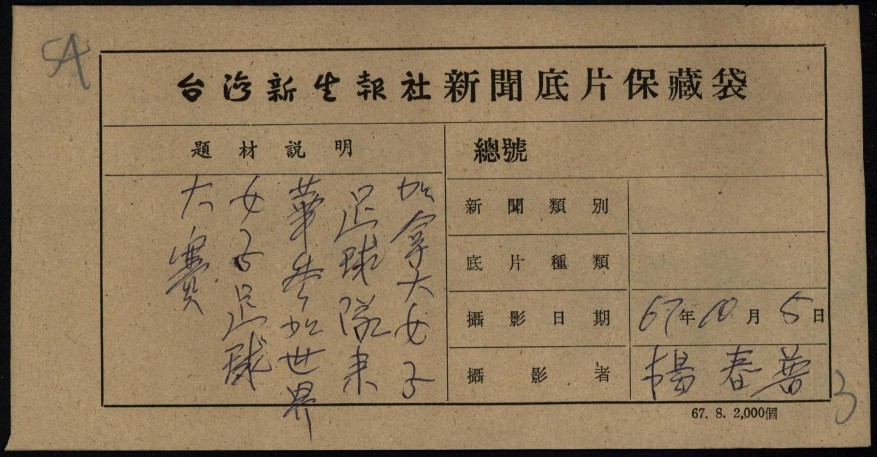 5A
台灣新生報社新聞底片保藏袋
題材說明
加拿大女子
足球隊來
華參加世界
女子足球
大賽
總號
新聞類別
底片種類
攝影日期
67年10月5日
攝影者
楊春普
67. 8. 2,000個
3